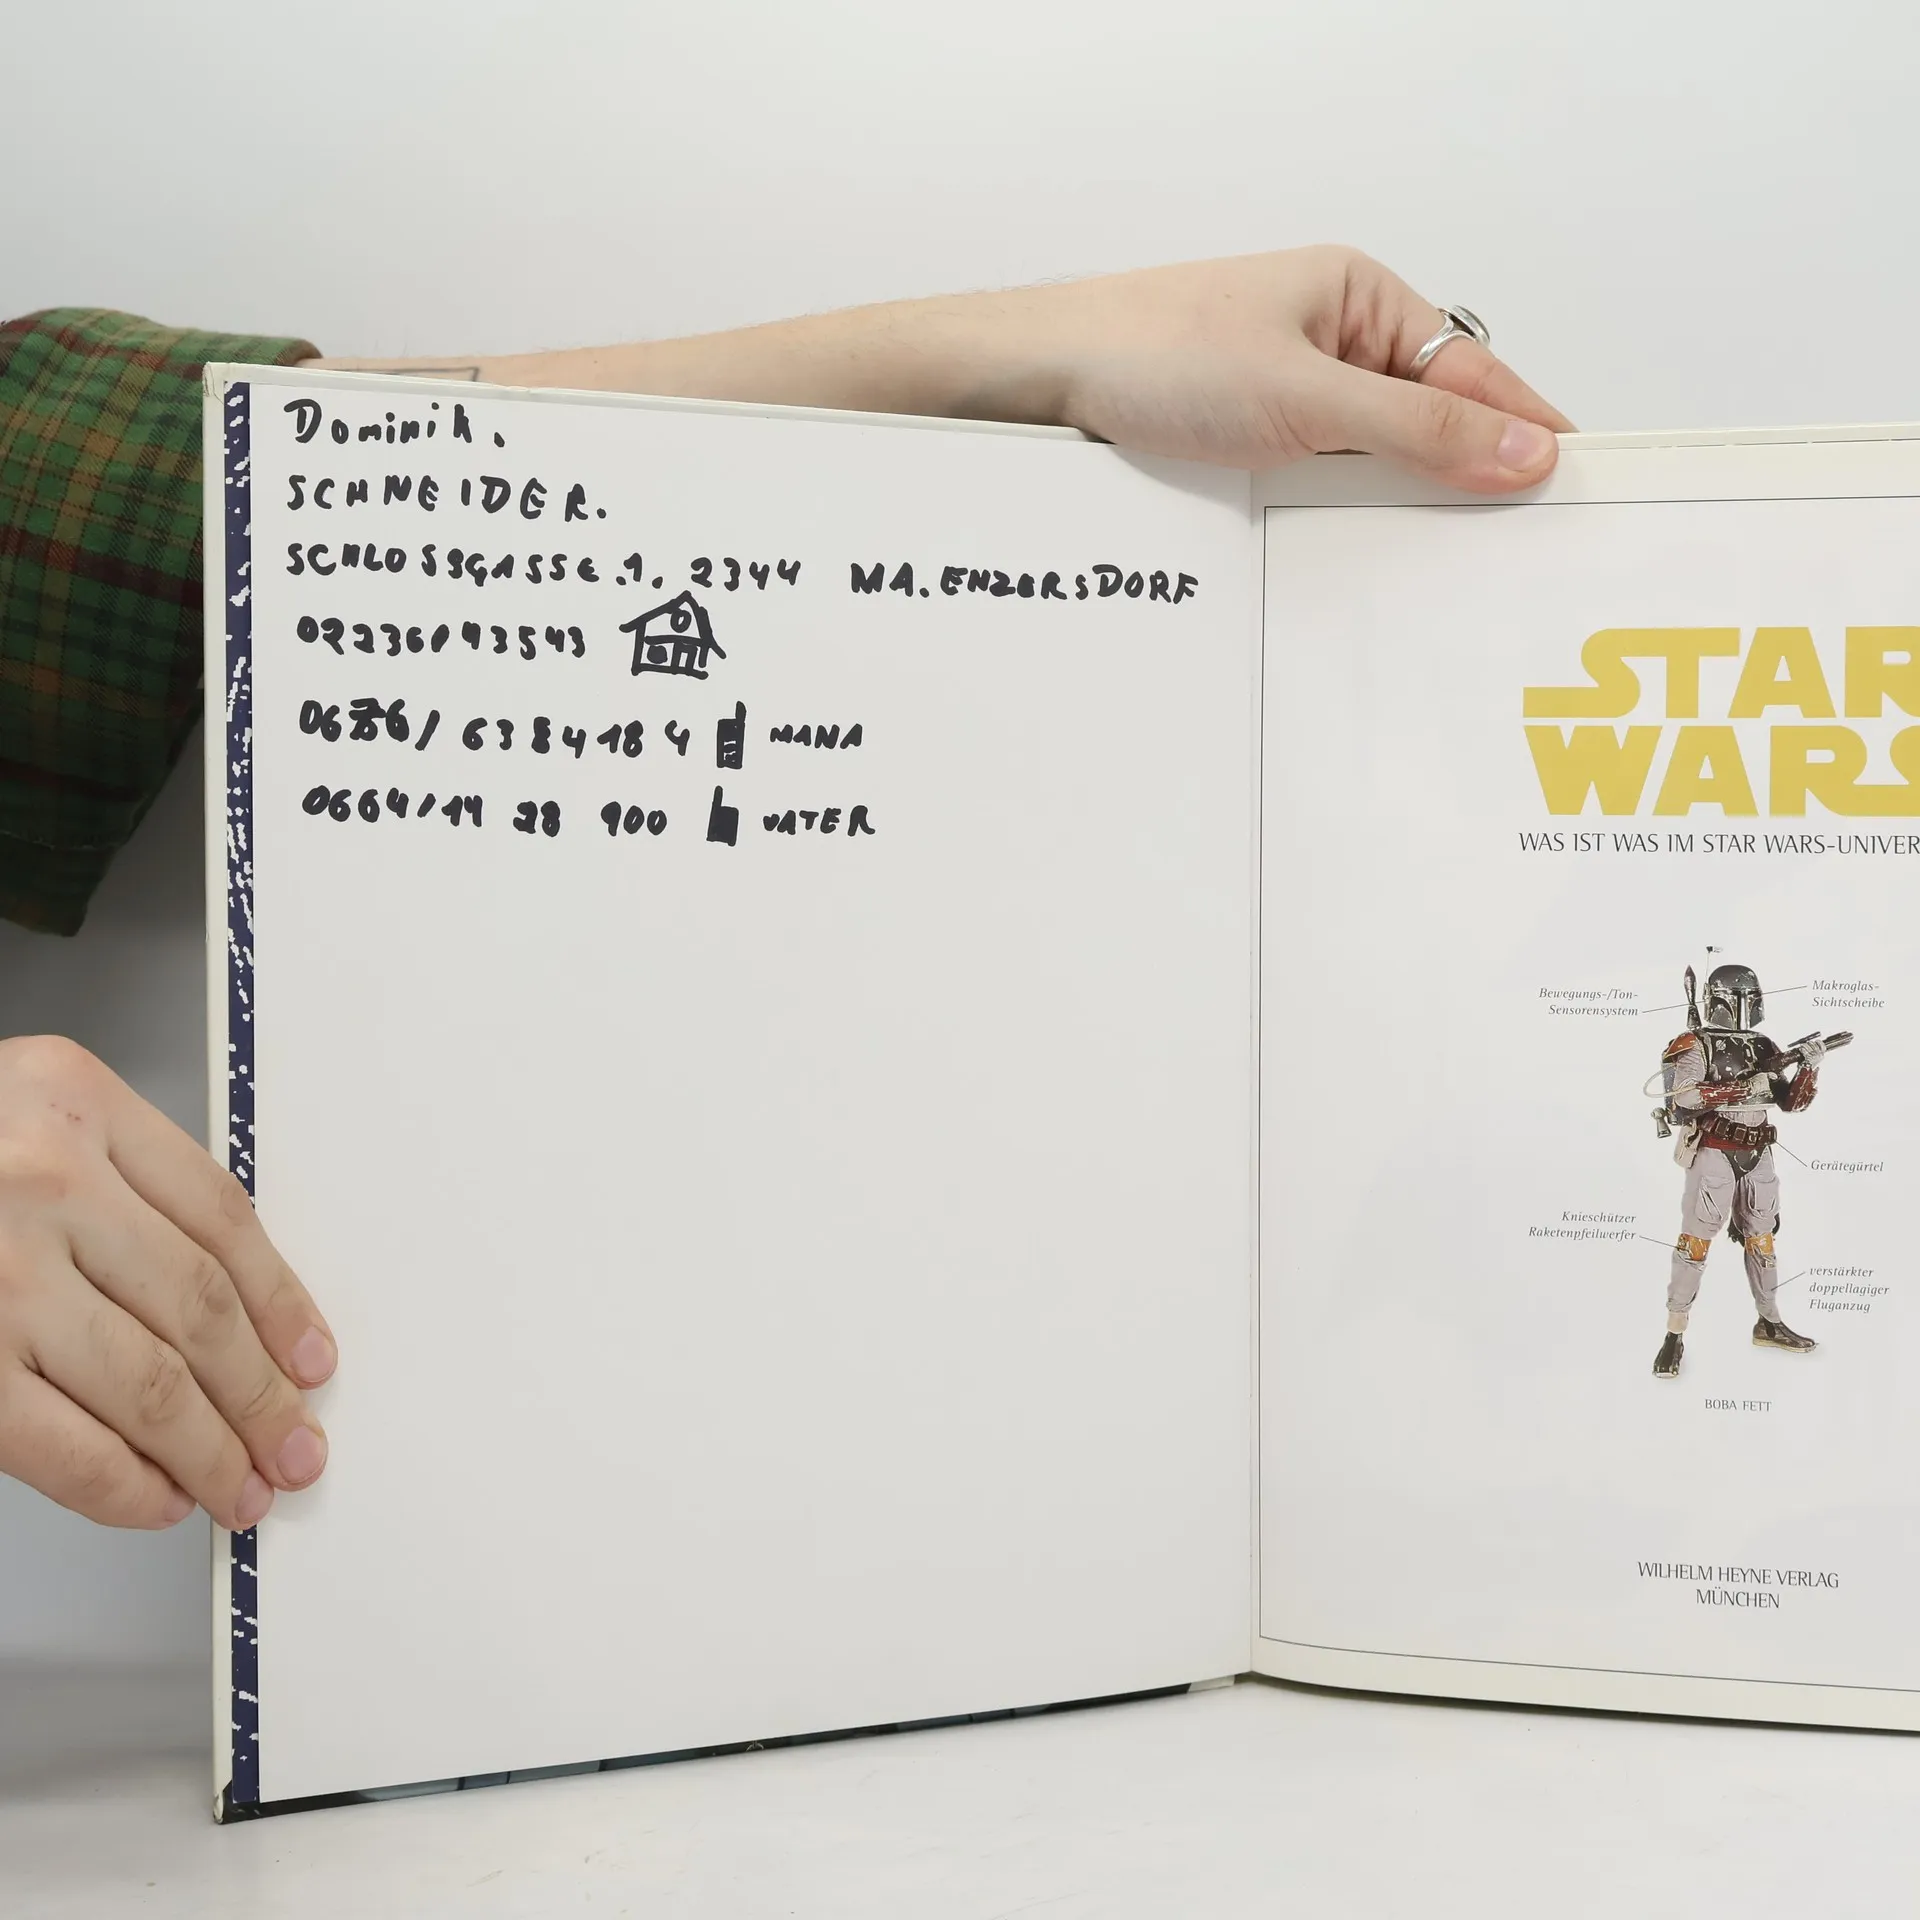 Dominik.
SCHNEIDER.
SCHLOSSGASSE.1. 2344 MA.ENZERSDORF
02236/43543
0676/ 6384184 MAMA
0664/14 28 900 VATER
STAR
WARS
WAS IST WAS IM STAR WARS-UNIVER
Bewegungs-/Ton-
Sensorensystem
Makroglas-
Sichtscheibe
Gerätegürtel
Knieschützer
Raketenpfeilwerfer
verstärkter
doppellagiger
Fluganzug
BOBA FETT
WILHELM HEYNE VERLAG
MÜNCHEN